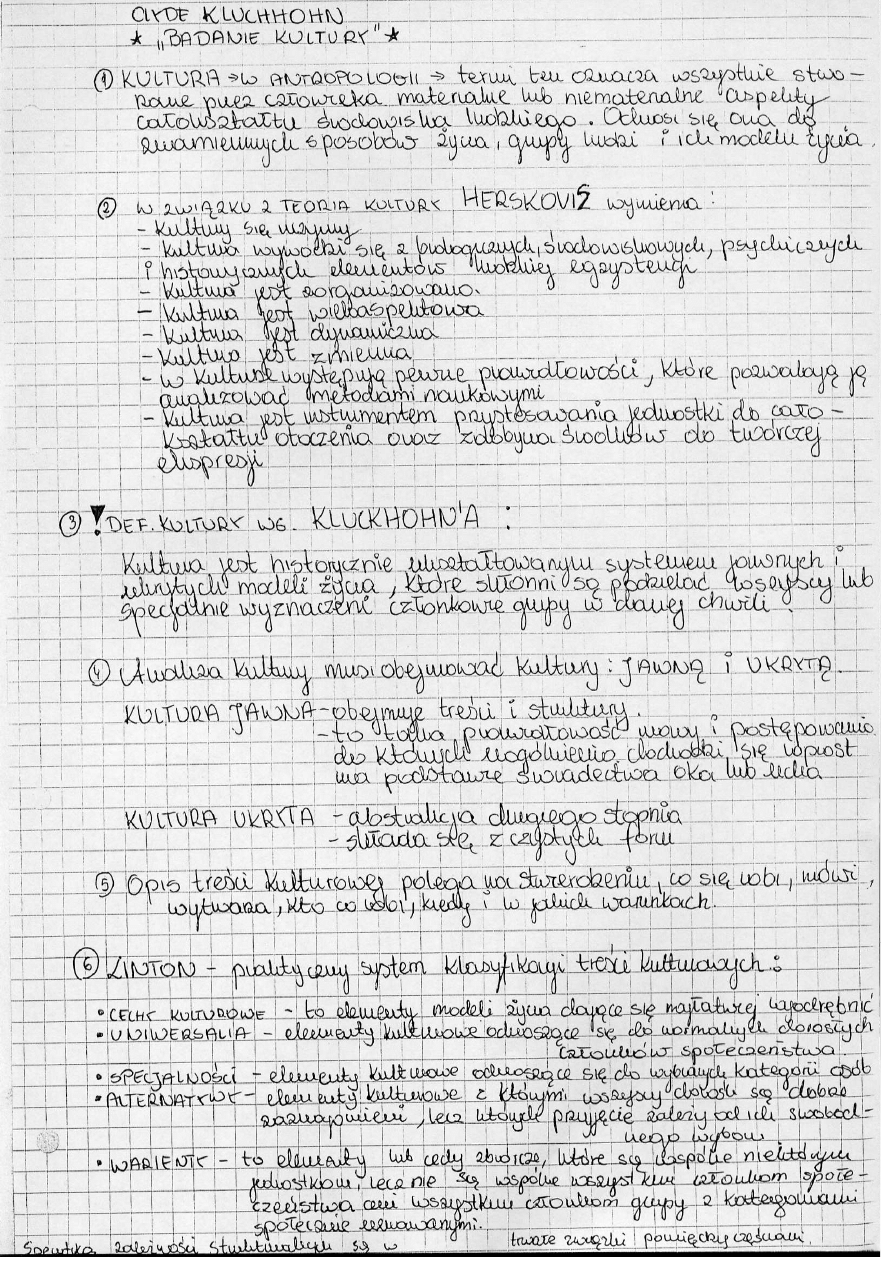 CLYDE KLUCHHOHN
* „BADANIE KULTURY” *
① KULTURA → W ANTROPOLOGII → termin ten oznacza wszystkie stwo-
rzone przez człowieka materialne lub niematerialne aspekty
całokształtu środowiska ludzkiego. Odnosi się ona do
znamiennych sposobów życia, grupy ludzi i ich modelu życia.
② W ZWIĄZKU Z TEORIĄ KULTURY HERSKOVIŠ wymienia:
- Kultury się uczymy
- Kultura wywodzi się z biologicznych, środowiskowych, psychicznych
i historycznych elementów ludzkiej egzystencji
- Kultura jest zorganizowana.
- Kultura jest wieloaspektowa
- Kultura jest dynamiczna
- Kultura jest zmienna
- w kulturze występują pewne prawidłowości, które pozwalają ją
analizować metodami naukowymi
- Kultura jest instrumentem przystosowania jednostki do cało-
kształtu otoczenia oraz zdobywa środków do twórczej
ekspresji
③ ! DEF. KULTURY WG. KLUCKHOHN'A :
Kultura jest historycznie ukształtowanym systemem jawnych i
ukrytych modeli życia, które skłonni są podzielać wszyscy lub
specjalnie wyznaczeni członkowie grupy w danej chwili.
④ Analiza kultury musi obejmować kultury: JAWNĄ i UKRYTĄ.
KULTURA JAWNA - obejmuje treści i struktury.
- to taka prawidłowość mowy i postępowania
do których uogólnienia dochodzi się wprost
na podstawie świadectwa oka lub ucha
KULTURA UKRYTA - abstrakcja drugiego stopnia
- składa się z czystych form
⑤ Opis treści kulturowej polega na stwierdzeniu, co się robi, mówi,
wytwarza, kto co robi, kiedy i w jakich warunkach.
⑥ LINTON - praktyczny system klasyfikacji treści kulturowych:
• CECHY KULTUROWE - to elementy modeli życia dające się najłatwiej wyodrębnić
• UNIWERSALIA - elementy kulturowe odnoszące się do normalnych dorosłych
członków społeczeństwa.
• SPECJALNOŚCI - elementy kulturowe odnoszące się do wybranych kategorii osób
• ALTERNATYWY - elementy kulturowe z którymi wszyscy dorośli są dobrze
zaznajomieni, lecz których przyjęcie zależy od ich swobod-
nego wyboru.
• WARIENTY - to elementy lub cechy zbiorcze, które są wspólne niektórym
jednostkom, lecz nie są wspólne wszystkim członkom społe-
czeństwa ani wszystkim członkom grupy z kategoriami
społecznie uznawanymi.
zależności strukturalnych są w trwałe związki pomiędzy częściami.